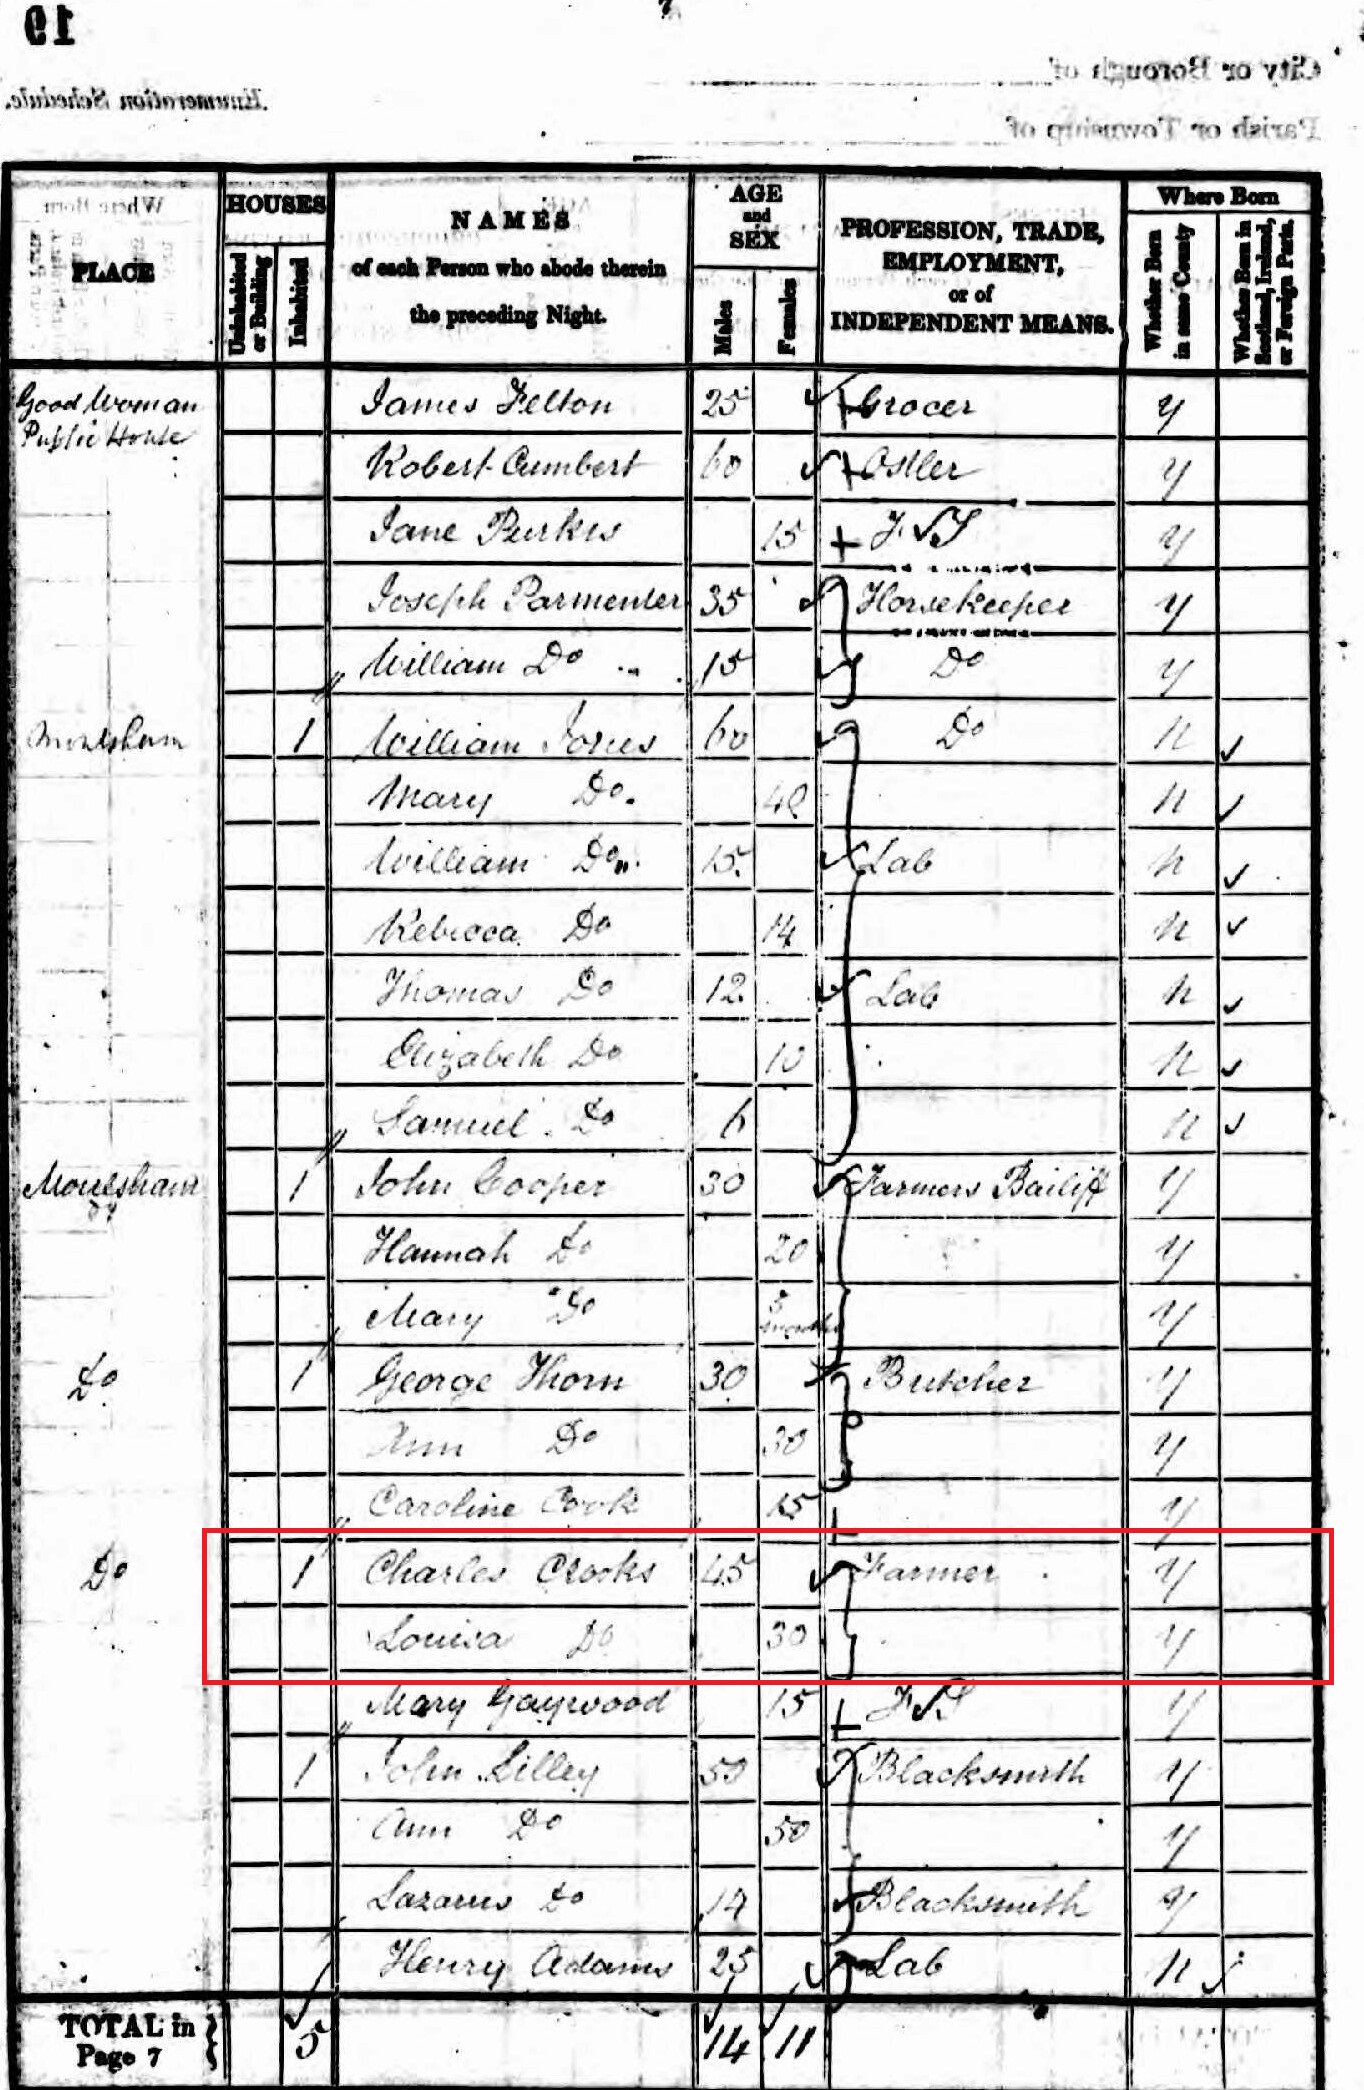 19
City or Borough of
Enumeration Schedule.
Parish or Township of
PLACE
HOUSES
Uninhabited or Building
Inhabited
NAMES
of each Person who abode therein
the preceding Night.
AGE
and
SEX
Males
Females
PROFESSION, TRADE,
EMPLOYMENT,
or of
INDEPENDENT MEANS.
Where Born
Whether Born in same County
Whether Born in Scotland, Ireland, or Foreign Parts.
Good Woman James Felton 25 Grocer y
Public House
Robert Cumbert 60 Ostler y
Jane Purkis 15 F S y
Joseph Parmenter 35 Horsekeeper y
William Do 15 Do y
1 William Jones 60 Do n
Mary Do. 40 n
William Do 15 Lab n
Rebecca Do 14 n
Thomas Do 12 Lab n
Elizabeth Do 10 n
Samuel Do 6 n
Moulsham 1 John Cooper 30 Farmers Bailiff y
Hannah Do 20 y
Mary Do months y
Do 1 George Thorn 30 Butcher y
Ann Do 30 y
Caroline Cook 15 y
Do 1 Charles Crooks 45 Farmer y
Louisa Do 30 y
Mary Gaywood 15 F S y
1 John Lilley 50 Blacksmith y
Ann Do 50 y
Lazarus Do 14 Blacksmith y
Henry Adams 25 Lab n
TOTAL in
Page 7 5 14 11